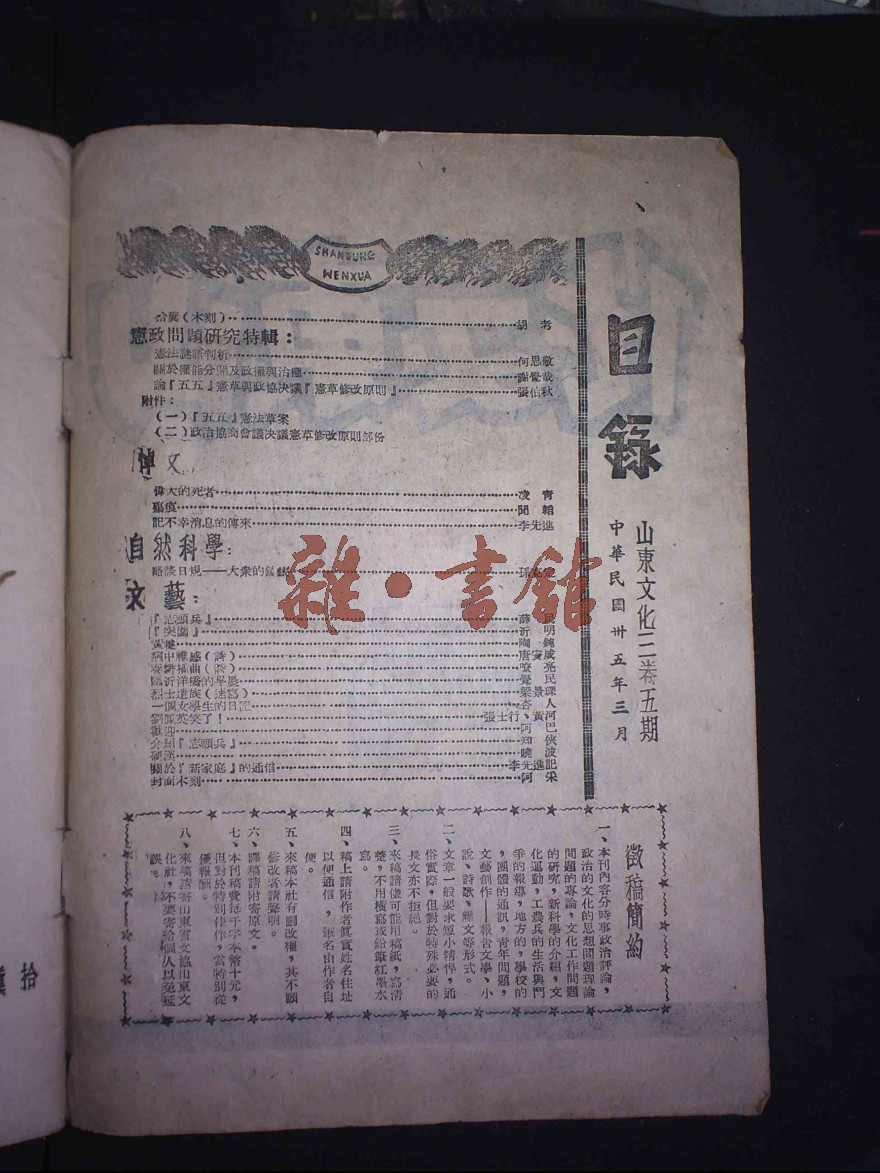 SHANDUNG
WENXUA
目錄
山東文化三卷五期
中華民國卅五年三月
拾糞(木刻)
胡考
憲政問題研究特輯:
憲法謎語判析
何思敬
關於權能分開及政權與治權
謝覺哉
論『五五』憲草與政協決議『憲草修改原則』
張伯秋
附件:
(一)『五五』憲法草案
(二)政治協商會議決議憲草修改原則部份
悼文
偉大的死者
凌青
記不幸消息的傳來
李先進
自然科學:
略談日規——大衆的
文藝:
『志願兵』
『突圍』
沂明
病中雜感(詩)
臨沂洋橋的早晨
烈士遺族(速寫)
一個女學生的日記
笑了!
張士行、黃河
歡迎
阿巴
介紹『志願兵』
關於『新家庭』的通信
李先進記
封面木刻
阿采
徵稿簡約
一、本刊內容分時事政治評論,
政治的文化的思想問題理論
問題的專論,文化工作問題
的研究,新科學的介紹,文
化運動,工農兵的生活與鬥
爭的報導,地方的,學校的
,團體的通訊,青年問題,
文藝創作——報告文學、小
說、詩歌、雜文等形式。
二、文章一般要求短小精悍,通
俗實際,但對於特殊必要的
長文亦不拒絕。
三、來稿請儘可能用稿紙,寫清
楚,不用橫寫或鉛筆紅墨水
寫。
四、稿上請附作者眞實姓名住址
以便通信,筆名由作者自
便。
五、來稿本社有刪改權,其不願
修改者請聲明。
六、譯稿請附寄原文。
七、本刊稿費每千字本幣十元,
但對於特別佳作,當特別從
優報酬。
八、來稿請寄山東省文協山東文
化社,不要寄給個人以免延
誤。
拾糞
雜·書館